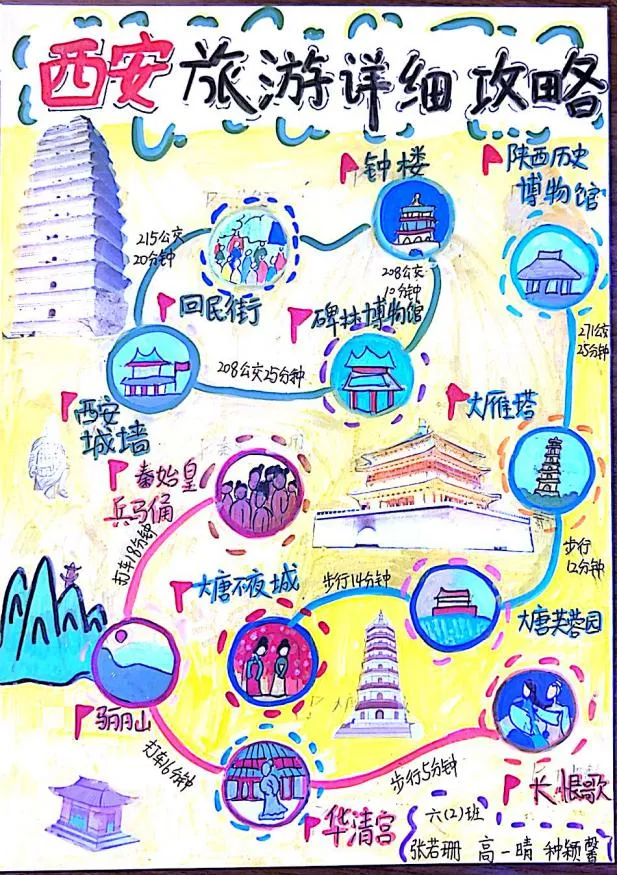 西安旅游详细攻略
钟楼
陕西历史
博物馆
215公交
20分钟
208公交
10分钟
回民街
碑林博物馆
271公交
25分钟
208公交25分钟
西安
城墙
大雁塔
秦始皇
兵马俑
打车18分钟
步行
12分钟
大唐不夜城
步行14分钟
大唐芙蓉园
骊山
打车16分钟
步行5分钟
长恨歌
华清宫
六(2)班
张若珊 高一晴 种颖馨